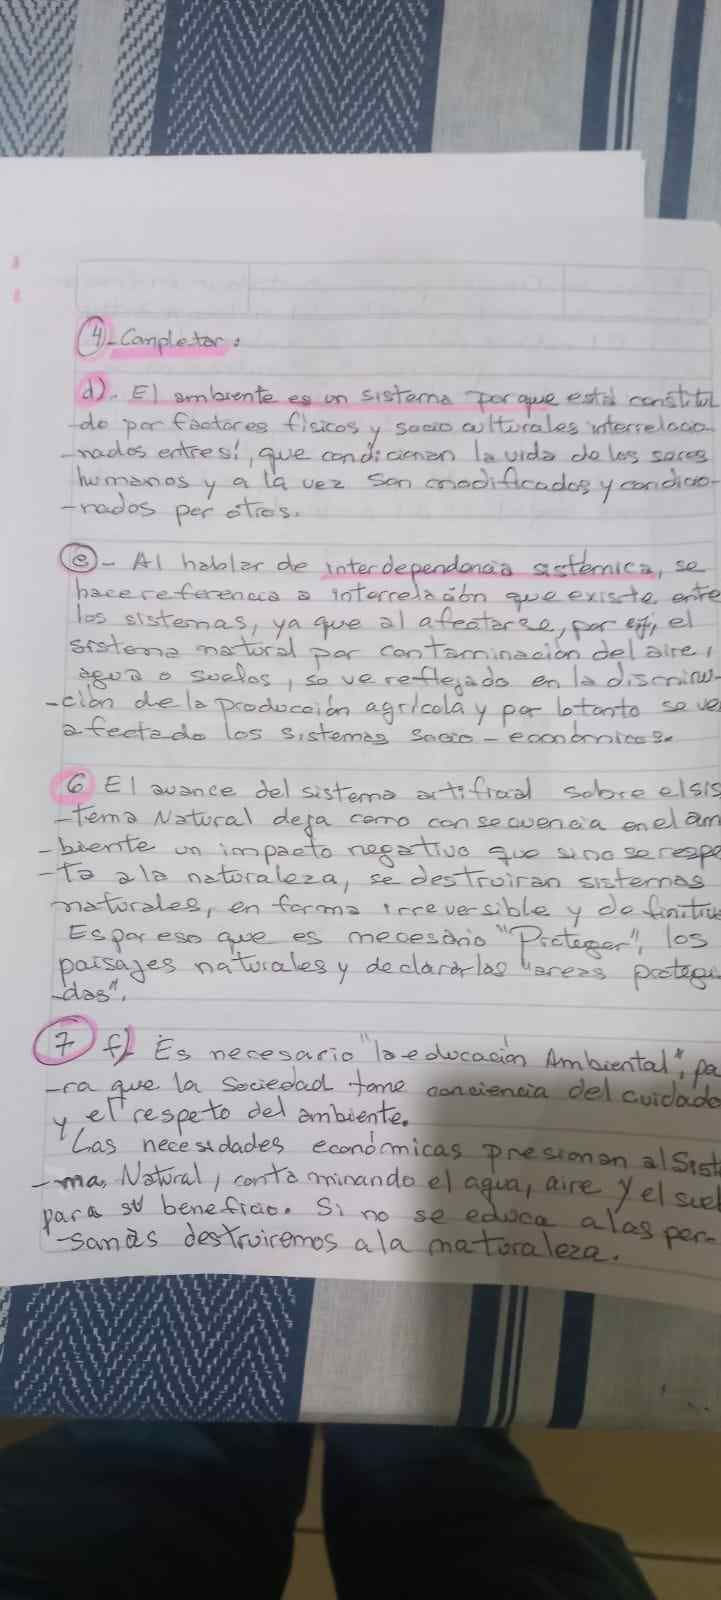 4-Completar:
d). El ambiente es un sistema porque está constitui
-do por factores físicos y socio culturales interrelacio
-nados entre sí, que condicionan la vida de los seres
humanos y a la vez son modificados y condicio-
-nados por otros.
e- Al hablar de interdependencia sistémica, se
hace referencia a interrelación que existe entre
los sistemas, ya que al afectarse, por ej, el
sistema natural por contaminación del aire,
agua o suelos, se ve reflejado en la disminu-
-ción de la producción agrícola y por lo tanto se ve
afectado los sistemas socio-económicos.
6 El avance del sistema artificial sobre el sis
-tema Natural deja como consecuencia en el am
-biente un impacto negativo que si no se respe
-ta a la naturaleza, se destruiran sistemas
naturales, en forma irreversible y definitiva
Es por eso que es necesario "Proteger", los
paisajes naturales y declararlas "areas protegi
-das".
7 f) Es necesario "la educación Ambiental", pa
-ra que la Sociedad tome conciencia del cuidado
y el respeto del ambiente.
Las necesidades económicas presionan al Sist
-ma Natural, contaminando el agua, aire y el suel
para su beneficio. Si no se educa a las per-
-sonas destruiremos a la naturaleza.